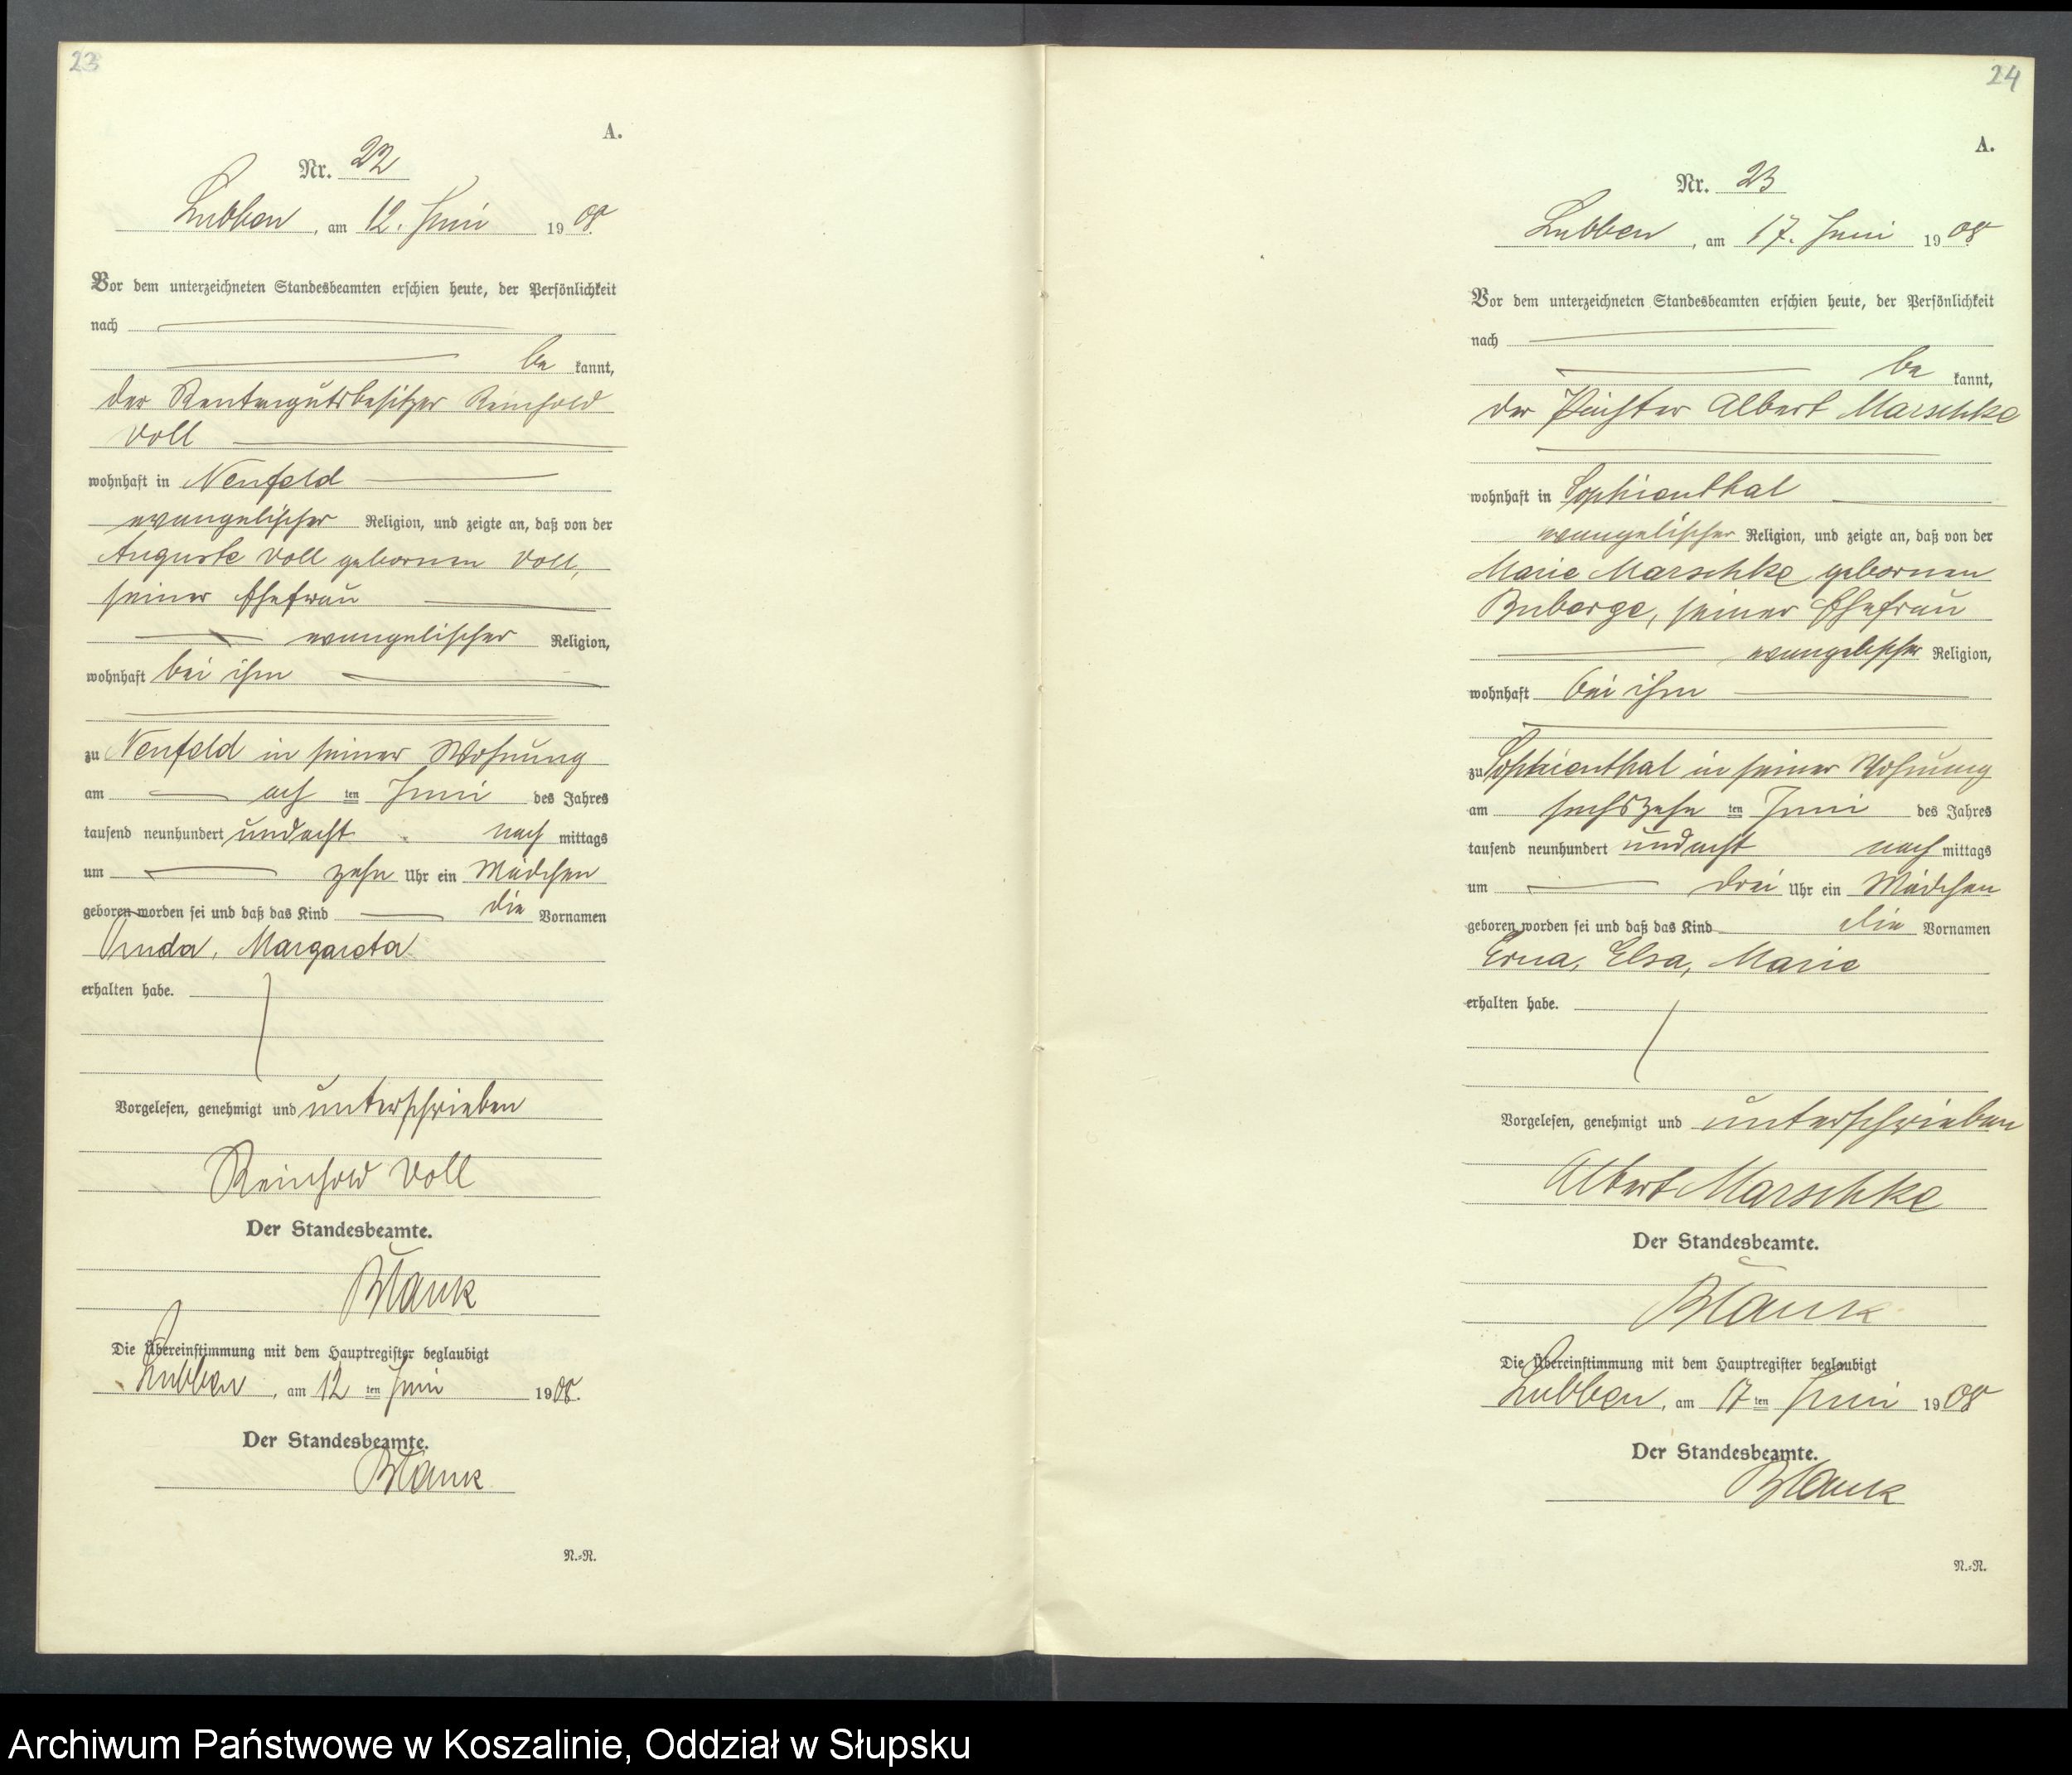 23
A.
Nr. 22
Lubben, am 12. Juni 1908.
Vor dem unterzeichneten Standesbeamten erschien heute, der Persönlichkeit
nach
be kannt,
der Rentengutsbesitzer Reinhold
Voll
wohnhaft in Neufeld
evangelischer Religion, und zeigte an, daß von der
Auguste Voll gebornen Voll,
seiner Ehefrau
evangelischer Religion,
wohnhaft bei ihm
zu Neufeld in seiner Wohnung
am ach ten Juni des Jahres
tausend neunhundert undacht nach mittags
um zehn Uhr ein Mädchen
geboren worden sei und daß das Kind die Vornamen
Margareta
erhalten habe.
Vorgelesen, genehmigt und unterschrieben
Reinhold Voll
Der Standesbeamte.
Blank
Die Übereinstimmung mit dem Hauptregister beglaubigt
Lubben, am 12 ten Juni 1908.
Der Standesbeamte.
Blank
N.=N.
24
A.
Nr. 23
Lubben, am 17. Juni 1908
Vor dem unterzeichneten Standesbeamten erschien heute, der Persönlichkeit
nach
be kannt,
der Pächter Albert Marschke
wohnhaft in Sophienthal
evangelischer Religion, und zeigte an, daß von der
Marie Marschke gebornen
Buberge, seiner Ehefrau
evangelischer Religion,
wohnhaft bei ihm
zu Sophienthal in seiner Wohnung
am sechszehn ten Juni des Jahres
tausend neunhundert undacht nach mittags
um drei Uhr ein Mädchen
geboren worden sei und daß das Kind die Vornamen
Erna, Elsa, Marie
erhalten habe.
Vorgelesen, genehmigt und unterschrieben
Albert Marschke
Der Standesbeamte.
Blank
Die Übereinstimmung mit dem Hauptregister beglaubigt
Lubben, am 17 ten Juni 1908
Der Standesbeamte.
Blank
N.=N.
Archiwum Państwowe w Koszalinie, Oddział w Słupsku